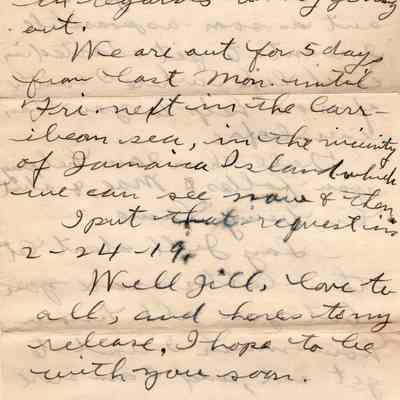 in regards to my going
out.
We are out for 5 days
from last Mon. until
Fri. neft in the Carr-
ibean sea, in the vicinity
of Jamaica Island which
we can see now & then
I put that request in
2-24-19.
Well Jill, love to
all, and heres to my
release, I hope to be
with you soon.